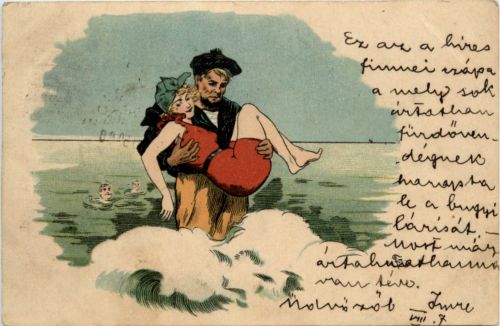 Ez az a híres
fiumei czápa
a mely sok
ártatlan
fürdőven-
dégnek
harapta
le a bugyi
lárisát.
Most már
ártalmatlanná
van téve.
Üdvözöl Imre
VIII. 7